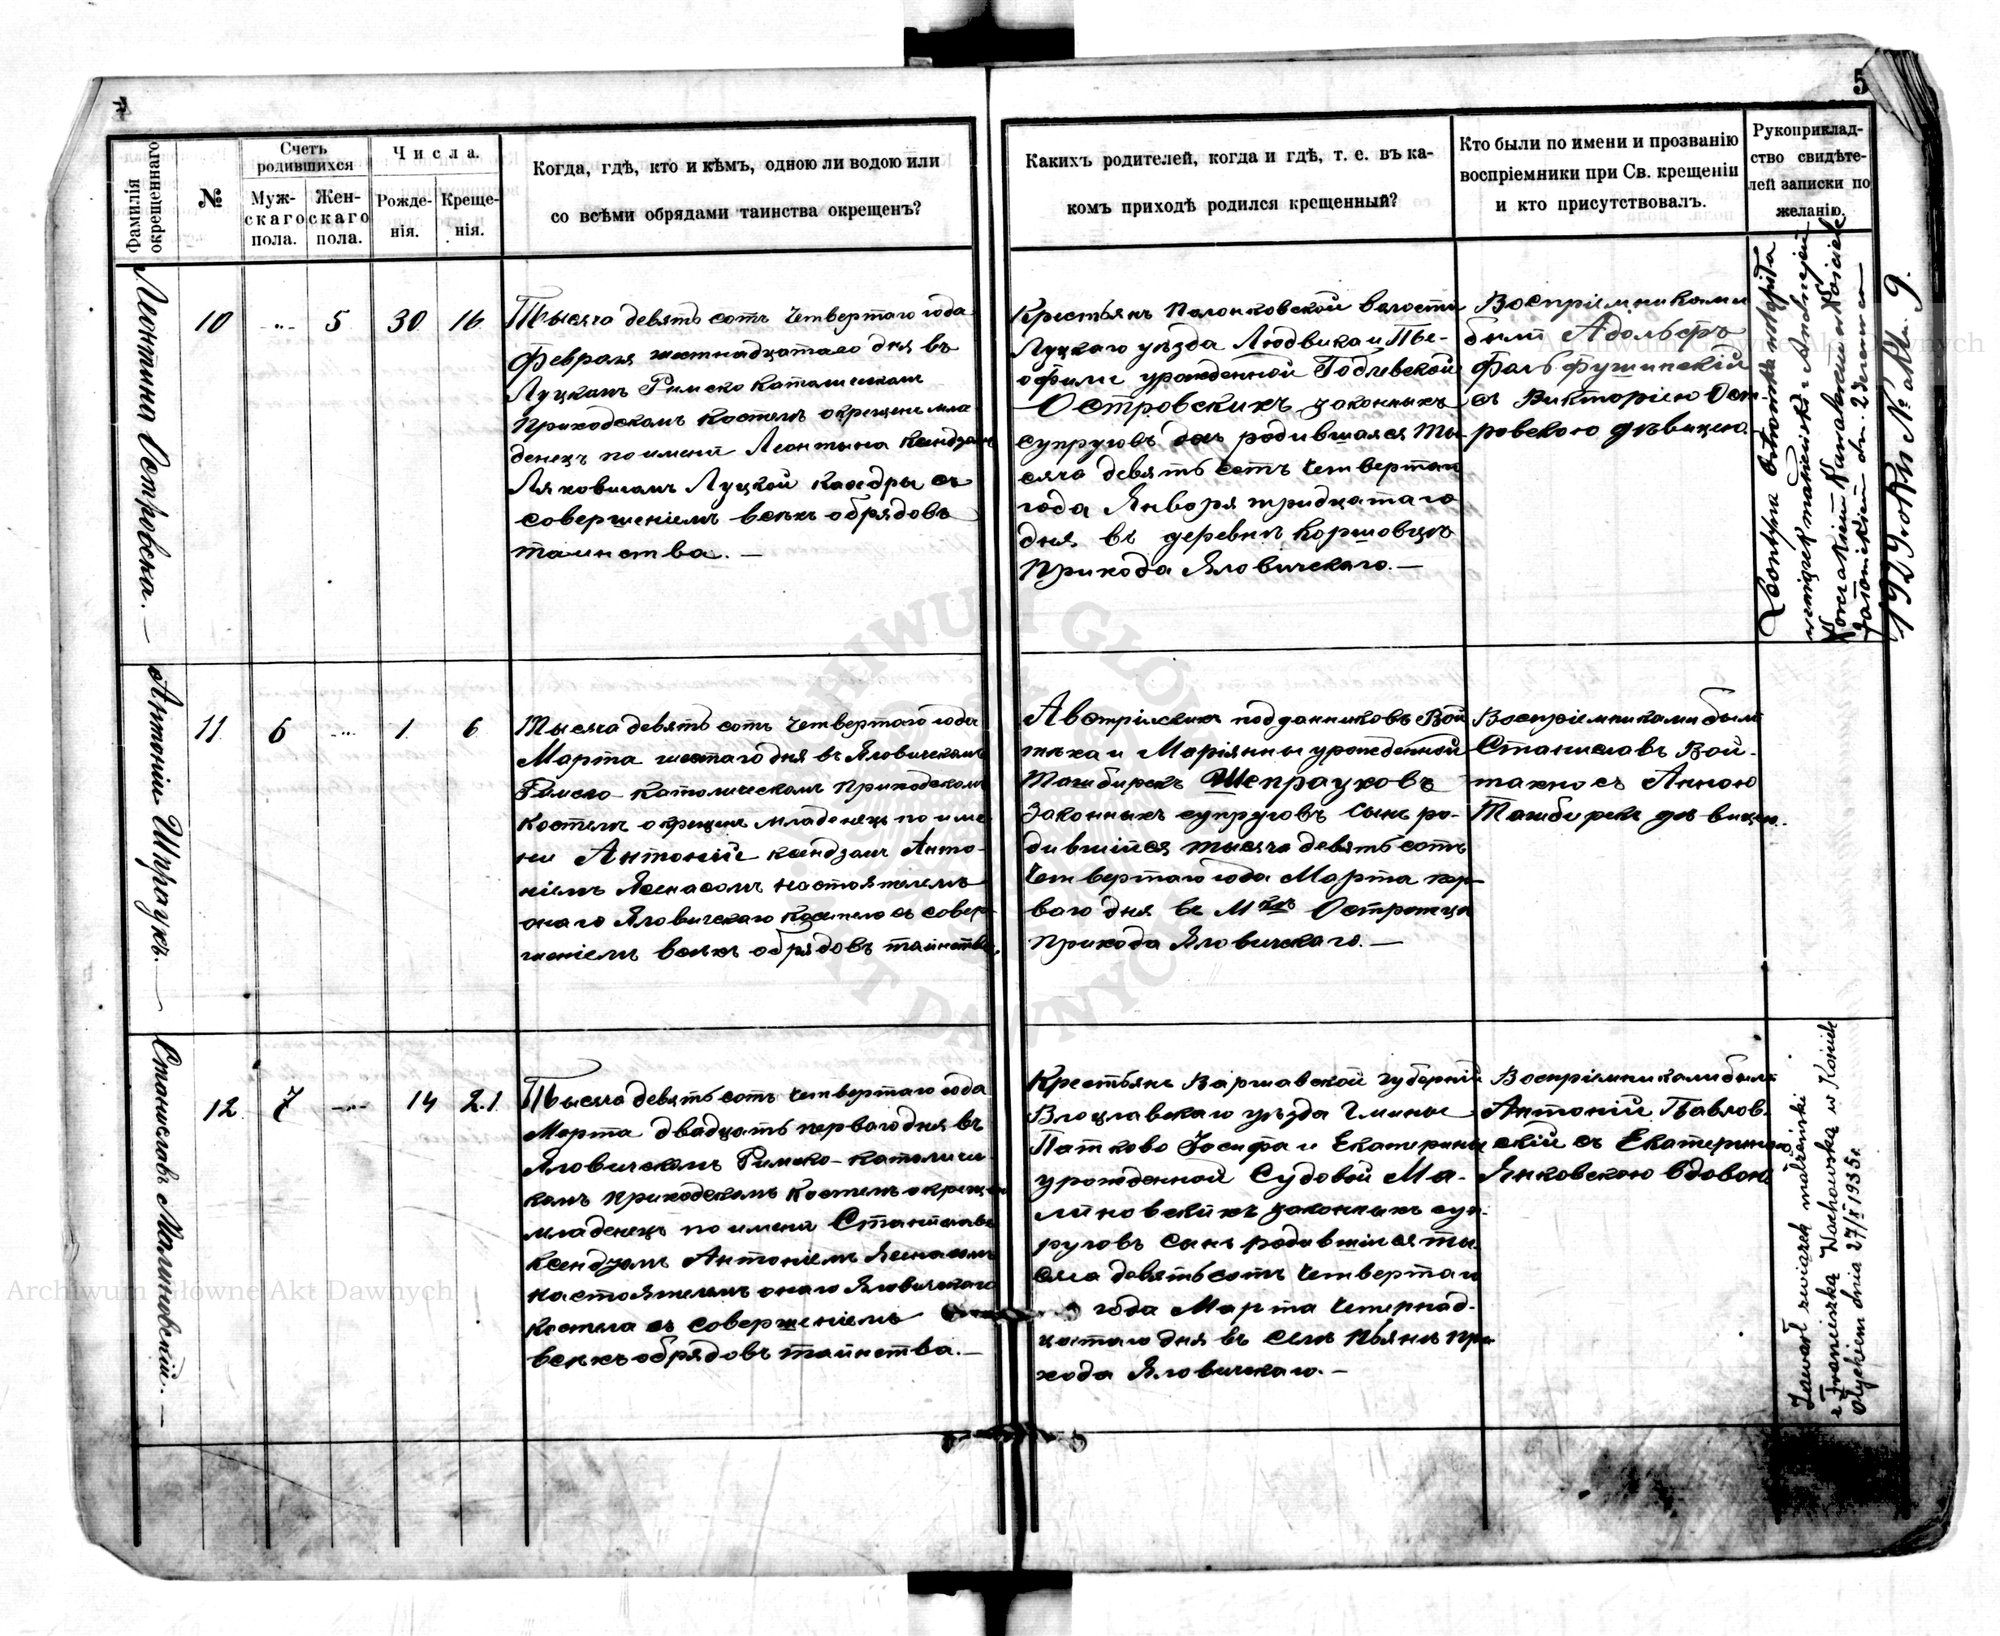 4
5
Фамилія окрещеннаго
№
Счетъ родившихся
Муж-
скаго
пола.
Жен-
скаго
пола.
Числа.
Рожде-
нія.
Креще-
нія.
Когда, гдѣ, кто и кѣмъ, одною ли водою или
со всѣми обрядами таинства окрещенъ?
Какихъ родителей, когда и гдѣ, т. е. въ ка-
комъ приходѣ родился крещенный?
Кто были по имени и прозванію
воспріемники при Св. крещеніи
и кто присутствовалъ.
Рукоприклад-
ство свидѣте-
лей записки по
желанію.
Леонтина Островска. —
10
5
30
16
Тысяча девятьсотъ четвертаго года
Февраля шестнадцатаго дня въ
Луцкомъ Римско Католическомъ
Приходскомъ Костелѣ окрещенъ мла
денецъ по имени Леонтына Ксендзомъ
Ляховичомъ Луцкой Кафедры съ
совершеніемъ всѣхъ обрядовъ
таинства. —
Крестьянъ Полонковской волости
Луцкаго уѣзда Людвика и Тье-
офили урожденной
Островскихъ законныхъ
супруговъ дочь родившаяся ты
сяча девятьсотъ четвертаго
года Января тридцатаго
дня въ деревнѣ Коршовцѣ
Прихода Яловичскаго. —
Воспріемниками
были Адольфъ
Фальфушинскій
съ Викторіею Ост-
ровскою дѣвицею.
Leontyna Ostrowska wstąpiła
w związek małżeński z Andrzejem
w Kościele
dn. 2 czerwca
1929 roku № aktu 9.
Антоній Шпраукъ. —
11
6
1
6
Тысяча девятьсотъ четвертаго года
Марта шестаго дня въ Яловичскомъ
Римско-католическомъ Приходскомъ
Костелѣ окрещенъ младенецъ по име
ни Антоній ксендзомъ Анто-
ніемъ Ясенасомъ настоятелемъ
онаго Яловичскаго Костела съ совер-
шеніемъ всѣхъ обрядовъ таинства.
Австрійскихъ подданниковъ Вой
тѣха и Маріянны урожденной
Ташбирекъ Шпрауковъ
законныхъ супруговъ сынъ ро-
дившійся тысяча девятьсотъ
четвертаго года Марта пер-
ваго дня въ Мкѣ Островцѣ
прихода Яловичскаго. —
Воспріемниками были
Станиславъ Вой-
тахно съ Анною
Ташбирекъ дѣвицею.
Станиславъ Малиновскій. —
12
7
14
21
Тысяча девятьсотъ четвертаго года
Марта двадцать перваго дня въ
Яловичскомъ Римско-католиче
комъ приходскомъ Костелѣ окрещенъ
младенецъ по имени Станиславъ
Ксендзомъ Антоніемъ Ясенасомъ
настоятелемъ онаго Яловичскаго
Костела съ совершеніемъ
всѣхъ обрядовъ таинства. —
Крестьянъ Варшавской губерніи
Влоцлавскаго уѣзда Гмины
Пятково Іосифа и Екатерины
урожденной Судовой Ма-
линовскихъ законныхъ суп-
руговъ сынъ родившійся ты
сяча девятьсотъ четвертаго
года Марта четырнад-
цатаго дня въ селѣ Пьянѣ при
хода Яловичскаго. —
Воспріемниками были
Антоній Павлов-
скій съ Екатериною
Янковскою вдовою.
Zawarł związek małżeński
z Franciszką Wochowską w Kościele
ołyckim dnia 27/X 1935 r.
Archiwum Główne Akt Dawnych
Archiwum Główne Akt Dawnych
ARCHIWUM GŁÓWNE AKT DAWNYCH